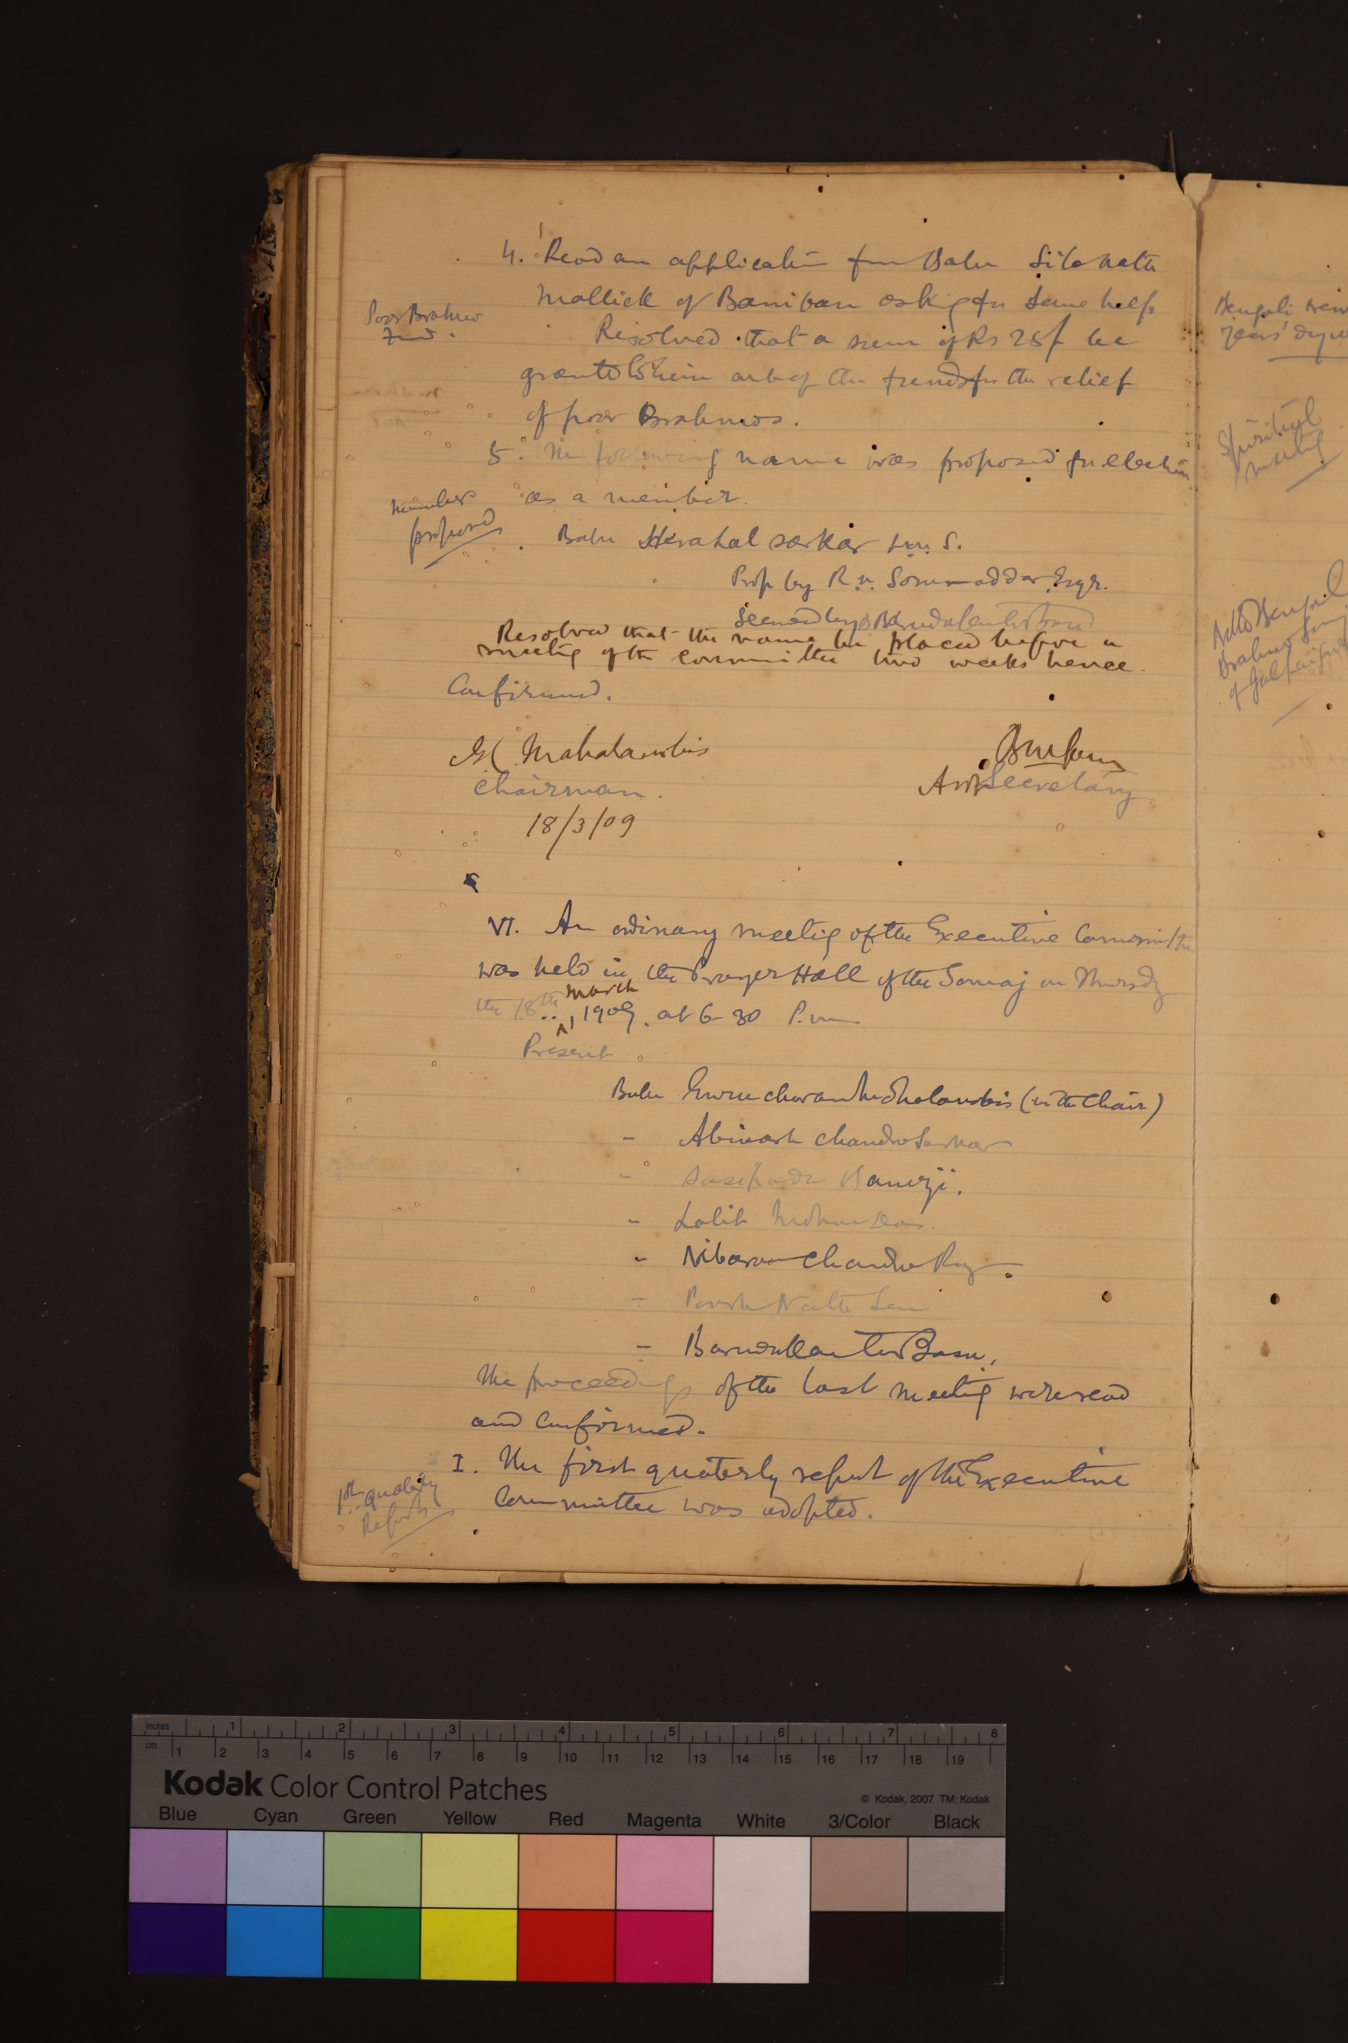 4. Read an application from Babu Sitanath
Mallick of Baniban asking for some help
Poor Brahmo
Fund.
Resolved that a sum of Rs 25/ be
granted to him out of the funds for the relief
of poor Brahmos.
5. The following name was proposed for election
as a member.
Members
proposed
Babu Hiralal Sarkar L.M.S.
Prop by R. N. Sommaddar Esqr.
Seconded by Baradakanta Basu
Resolved that the name be placed before a
meeting of the committee two weeks hence.
Confirmed.
G C Mahalanobis
Chairman.
Asst Secretary
18/3/09
VI. An ordinary meeting of the Executive Committee
was held in the Prayer Hall of the Somaj on Thursdy
the 18th March 1909. at 6-30 P.m
Present
Babu Guru charan Mahalanobis (in the Chair)
- Abinash Chandra Sarkar
- Sasipada Banerji.
- Lalit Mohun Das.
- Nibaran Chandra Roy.
- Paresh Nath Sen
- Baradakanta Basu.
The proceedings of the last meeting were read
and confirmed.
I. The first quaterly report of the Executive
Committee was adopted.
1st quaterly
Report
Bengali New
Years' day
Spiritual
meeting
Brahmo Somaj
of Jalpaiguri
inches 1 2 3 4 5 6 7 8
cm 1 2 3 4 5 6 7 8 9 10 11 12 13 14 15 16 17 18 19
Kodak Color Control Patches
© Kodak, 2007 TM: Kodak
Blue Cyan Green Yellow Red Magenta White 3/Color Black